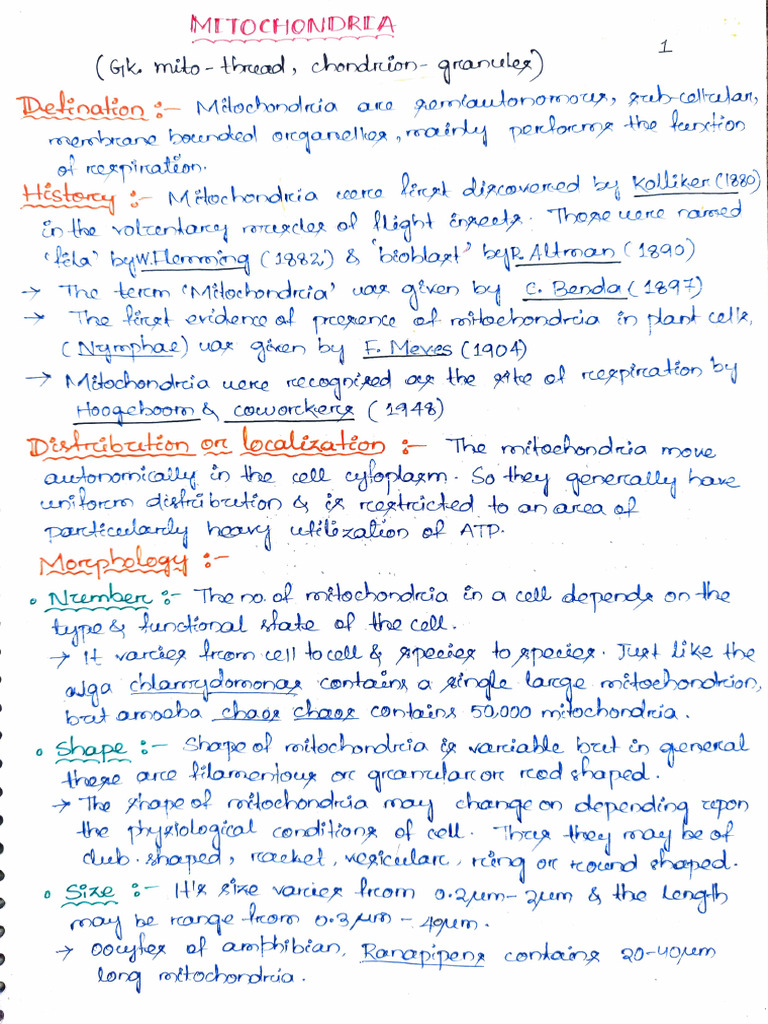 MITOCHONDRIA
1
(Gk. mito-thread, chondrion-granules)
Defination :- Mitochondria are semiautonomous, sub-cellular,
membrane bounded organelles, mainly performs the function
of respiration.
History :- Mitochondria were first discovered by Kolliker (1880)
in the voluntary muscles of flight insects. Those were named
'fila' by W. Flemming (1882) & 'bioblast' by R. Altman (1890)
→ The term 'Mitochondria' was given by C. Benda (1897)
→ The first evidence of presence of mitochondria in plant cells,
(Nymphae) was given by F. Meves (1904)
→ Mitochondria were recognised as the site of respiration by
Hoogeboom & coworkers (1948)
Distribution or localization :- The mitochondria move
autonomically in the cell cytoplasm. So they generally have
uniform distribution & is restricted to an area of
particularly heavy utilization of ATP.
Morphology :-
• Number :- The no. of mitochondria in a cell depends on the
type & functional state of the cell.
→ It varies from cell to cell & species to species. Just like the
alga chlamydomonas contains a single large mitochondrion,
but amoeba chaos chaos contains 50,000 mitochondria.
• Shape :- Shape of mitochondria is variable but in general
these are filamentous or granular or rod shaped.
→ The shape of mitochondria may change on depending upon
the physiological conditions of cell. Thus they may be of
club-shaped, racket, vesicular, ring or round shaped.
• Size :- It's size varies from 0.2μm - 2μm & the length
may be range from 0.3μm - 40μm.
→ Oocytes of amphibian, Ranapipens contains 20-40μm
long mitochondria.